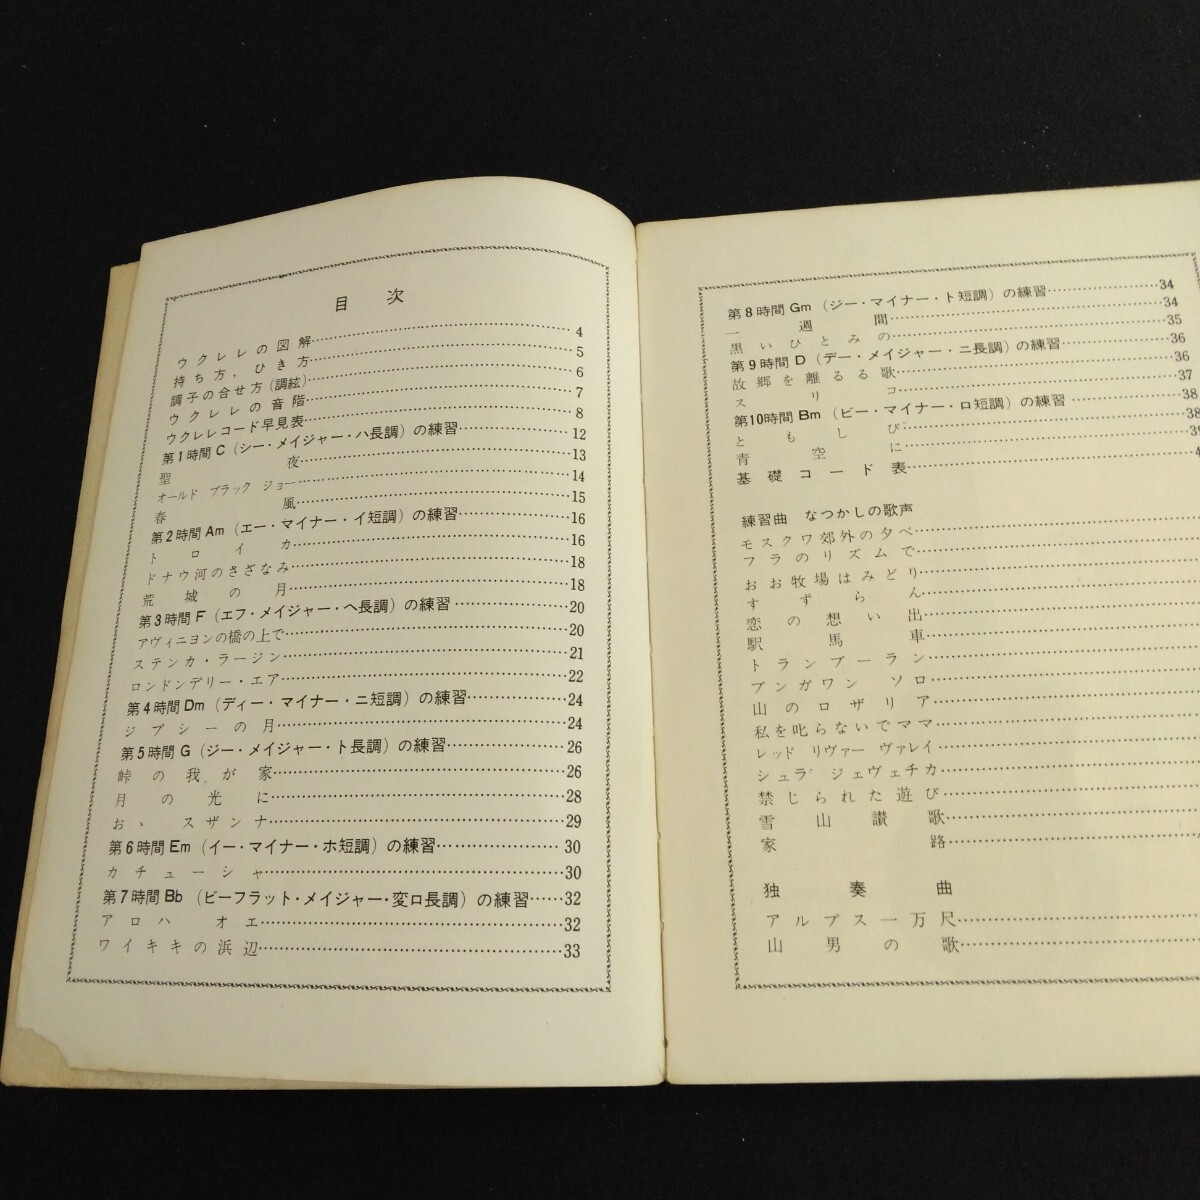 目次
ウクレレの図解 4
持ち方, ひき方 5
調子の合せ方(調絃) 6
ウクレレの音階 7
ウクレレコード早見表 8
第1時間 C (シー・メイジャー・ハ長調)の練習 12
聖夜 13
オールド ブラック ジョー 14
春風 15
第2時間 Am (エー・マイナー・イ短調)の練習 16
トロイカ 16
ドナウ河のさざなみ 18
荒城の月 18
第3時間 F (エフ・メイジャー・ヘ長調)の練習 20
アヴィニヨンの橋の上で 20
ステンカ・ラージン 21
ロンドンデリー・エア 22
第4時間 Dm (ディー・マイナー・ニ短調)の練習 24
ジプシーの月 24
第5時間 G (ジー・メイジャー・ト長調)の練習 26
峠の我が家 26
月の光に 28
おゝ スザンナ 29
第6時間 Em (イー・マイナー・ホ短調)の練習 30
カチューシャ 30
第7時間 Bb (ビーフラット・メイジャー・変ロ長調)の練習 32
アロハ オエ 32
ワイキキの浜辺 33
第8時間 Gm (ジー・マイナー・ト短調)の練習 34
一週間 34
黒いひとみの 35
第9時間 D (デー・メイジャー・ニ長調)の練習 36
故郷を離るる歌 36
スリコ 37
第10時間 Bm (ビー・マイナー・ロ短調)の練習 38
ともしび 38
青空に 39
基礎コード表 4
練習曲 なつかしの歌声
モスクワ郊外の夕べ
フラのリズムで
おお牧場はみどり
すずらん
恋の想い出
駅馬車
トランブーラン
ブンガワン ソロ
山のロザリア
私を叱らないでママ
レッド リヴァー ヴァレイ
シュラ ジェヴェチカ
禁じられた遊び
雪山讃歌
家路
独奏曲
アルプス一万尺
山男の歌